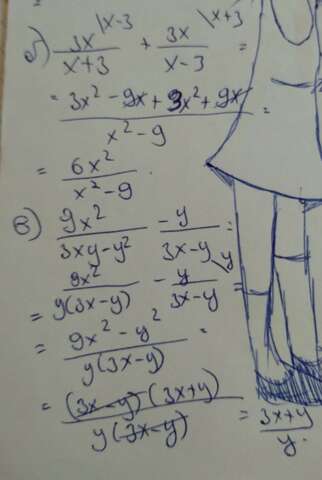 б) 3x\x-3 / x+3 + 3x\x+3 / x-3 =
= 3x² - 9x + 3x² + 9x / x² - 9 =
= 6x² / x² - 9 .
в) 9x² / 3xy - y² - y / 3x - y =
= 9x² / y(3x - y) - y\y / 3x - y =
= 9x² - y² / y(3x - y) =
= (3x - y)(3x + y) / y(3x - y) = 3x + y / y .